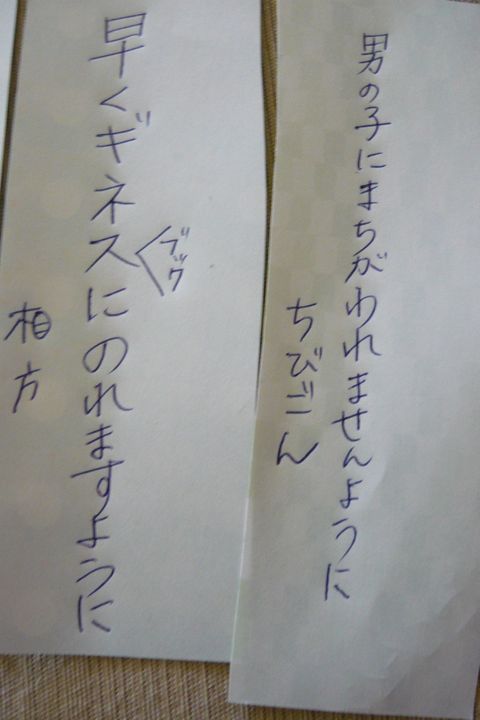 男の子にまちがわれませんように
ちびごん
早くギネスにのれますように
ブック
相方